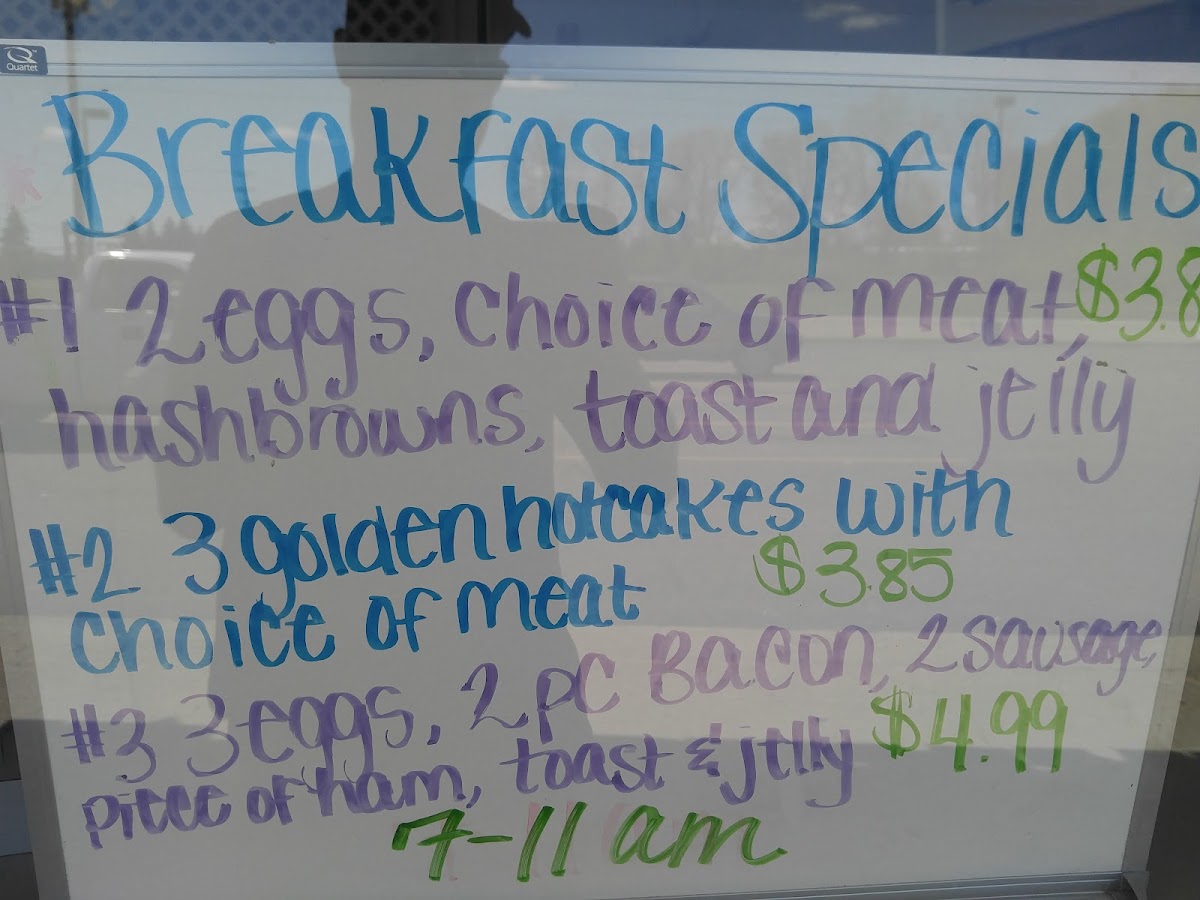 Quartet
Breakfast Specials
#1 2 eggs, choice of meat, $3.8
hashbrowns, toast and jelly
#2 3 golden hotcakes with
choice of meat $3.85
#3 3 eggs, 2 pc Bacon, 2 sausage,
piece of ham, toast & jelly $4.99
7-11 am